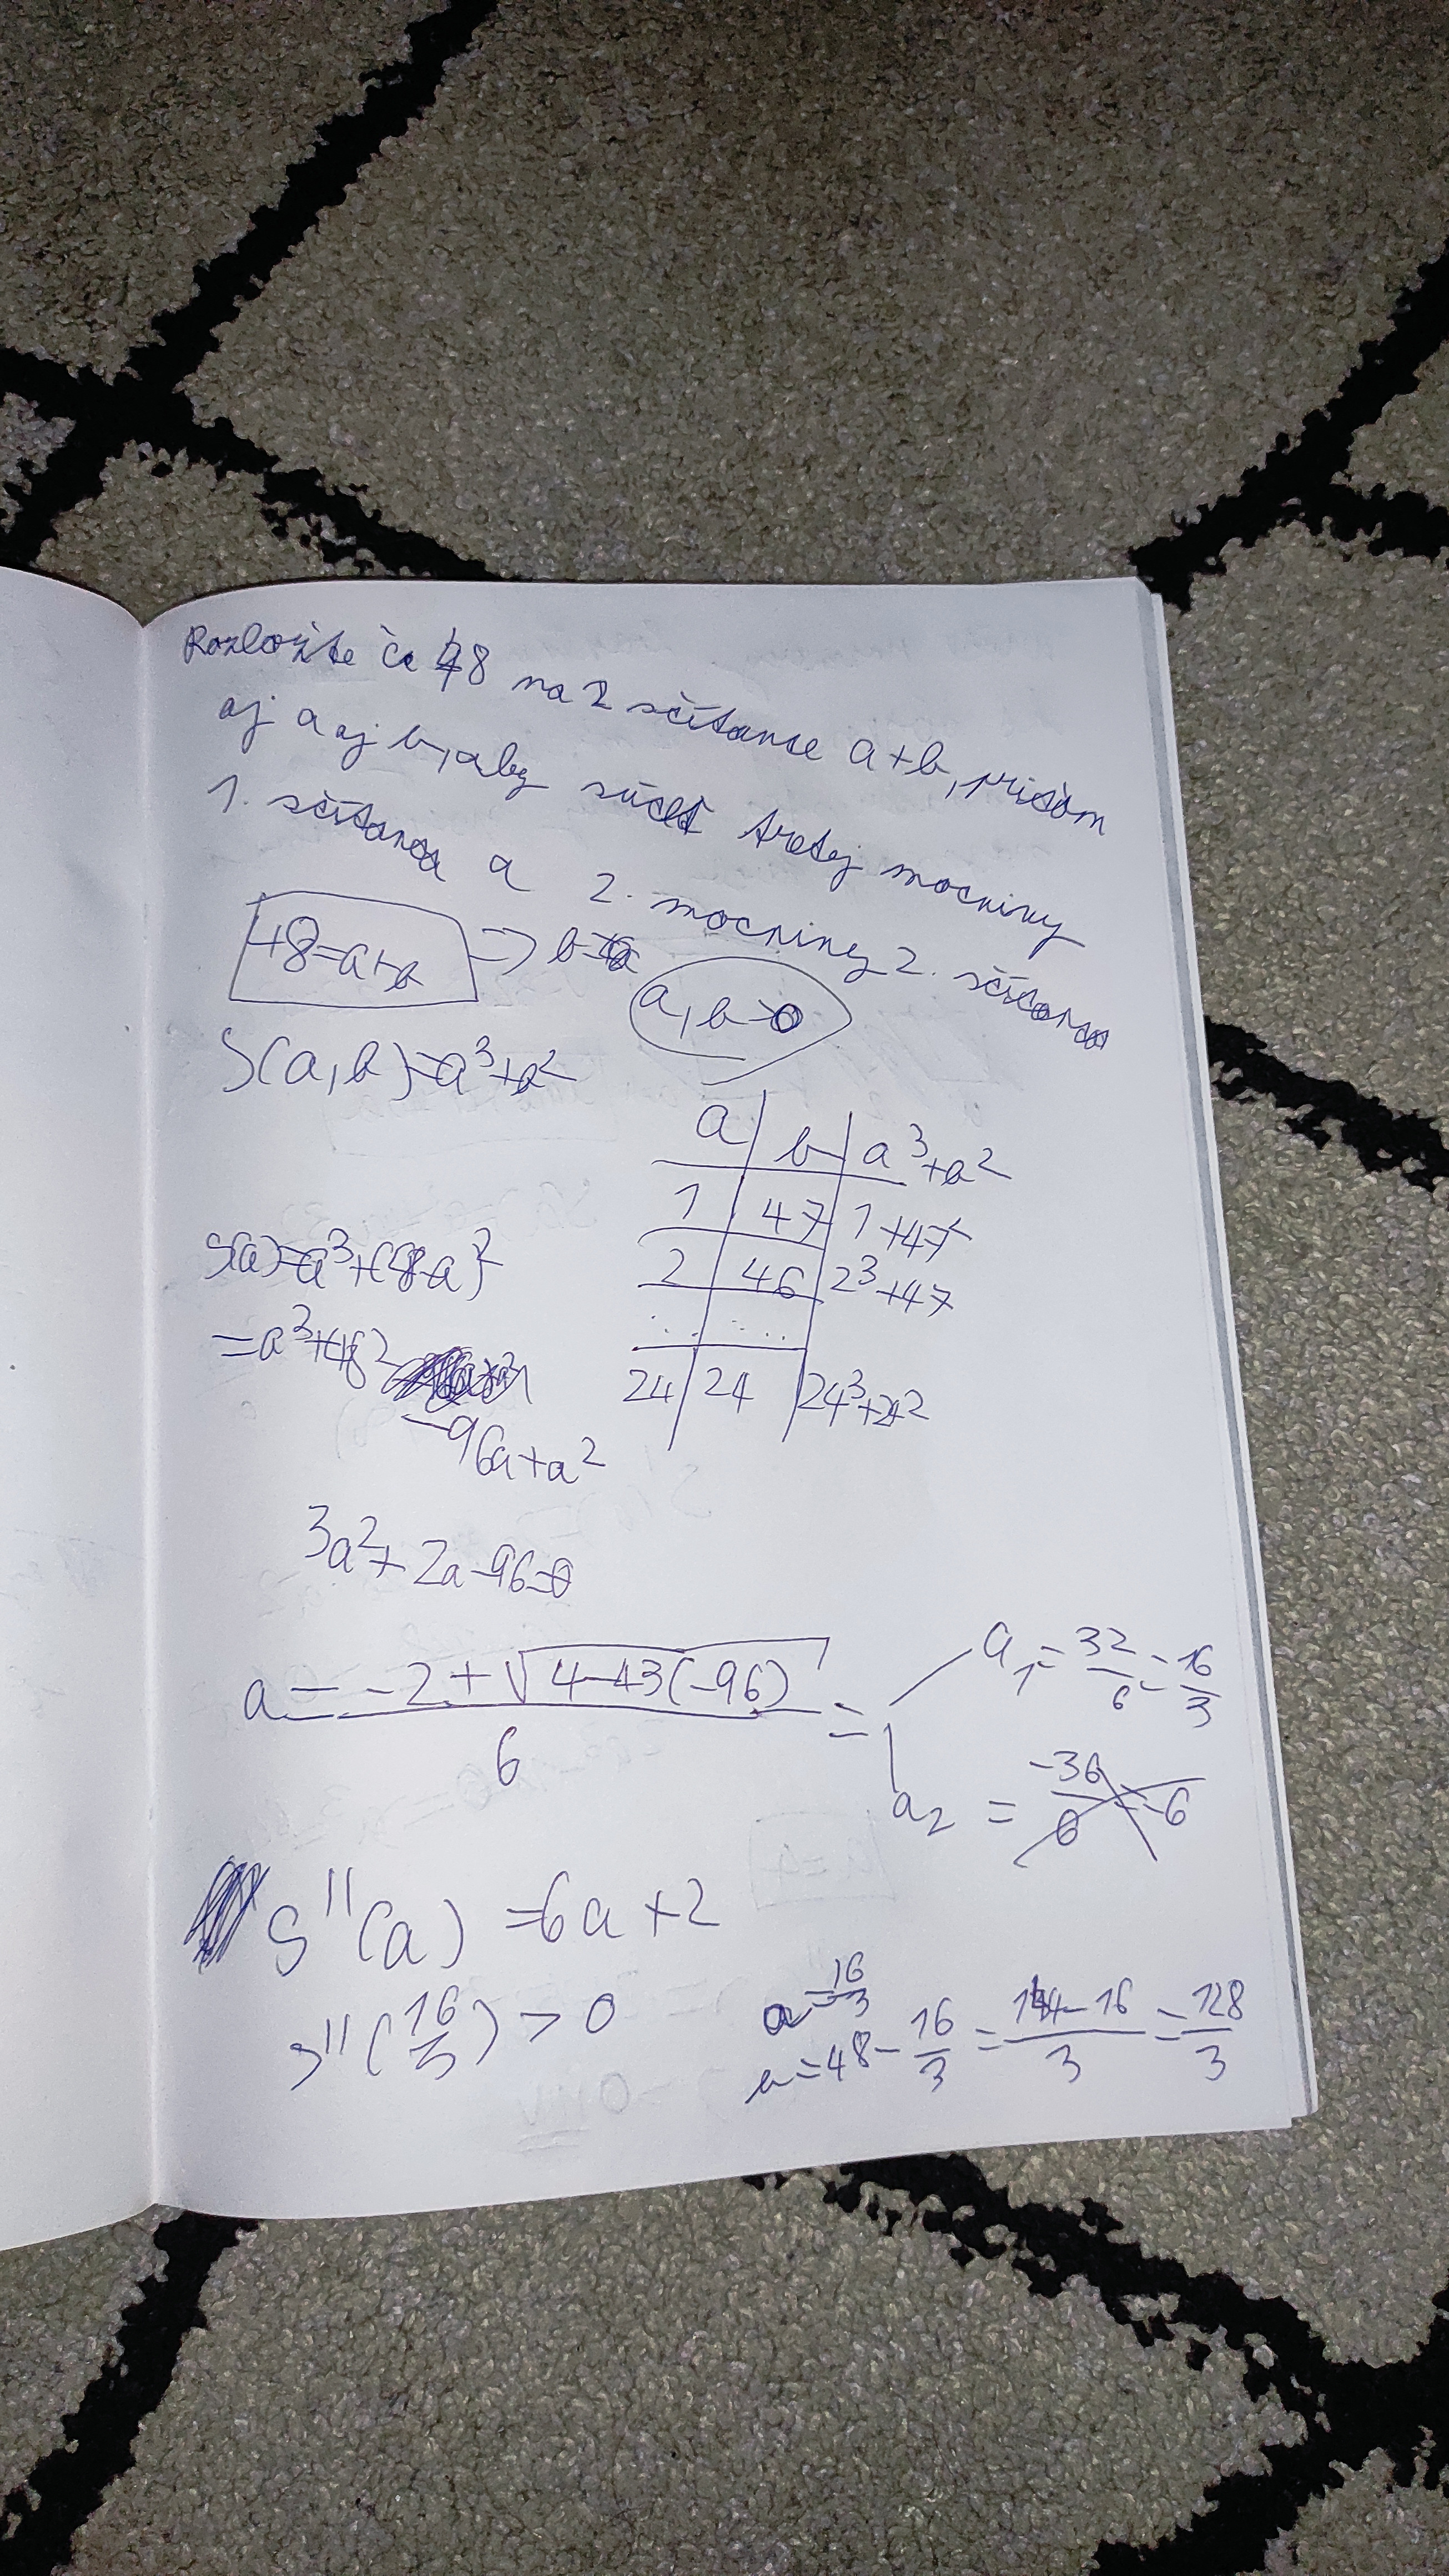 Rozložte čo 48 na 2 sčítance a+b, pričom
aj a aj b, aby súčet tretej mocniny
1. sčítanca a 2. mocniny 2. sčítanca
48=a+b => b=
a, b>0
S(a,b)=a³+b²
a | b | a³+b²
1 | 47 | 1+47²
2 | 46 | 2³+47
... | ...
24 | 24 | 24³+24²
S(a)=a³+(48-a)²
=a³+48²
-96a+a²
3a²+2a-96=0
a = -2±√4-43(-96) / 6 =
a₁ = 32/6 = 16/3
a₂ = -36/6 = -6
S''(a) = 6a+2
S''(16/3) > 0
a = 16/3
b = 48 - 16/3 = 144-16/3 = 128/3